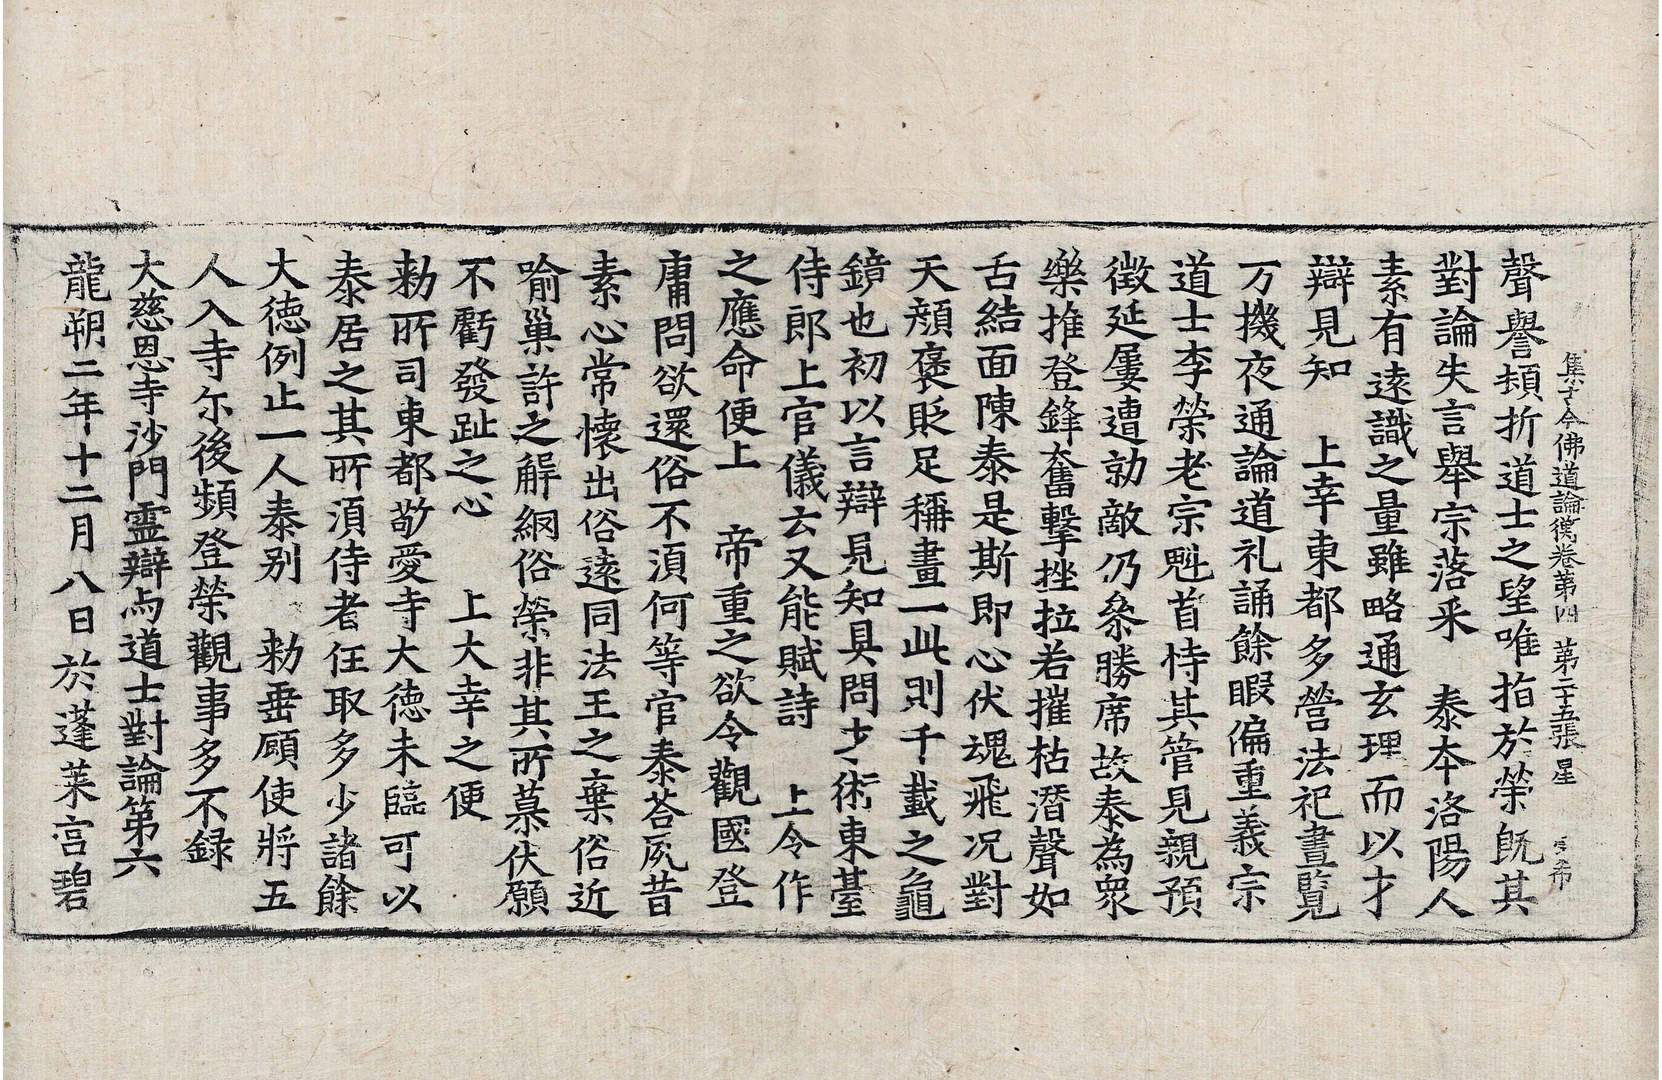 集古今佛道論衡卷第四 第二十五張 星
聲譽頻折道士之望唯指於榮旣其
對論失言舉宗落釆 泰本洛陽人
素有遠識之量雖略通玄理而以才
辯見知 上幸東都多營法祀晝覽
万機夜通論道礼誦餘暇偏重義宗
道士李榮老宗魁首恃其管見親預
徵延屢遭勍敵仍參勝席故泰為衆
樂推登鋒奮擊挫拉若摧枯潛聲如
舌結面陳泰是斯即心伏魂飛况對
天顏褒貶足稱畫一此則千載之龜
鏡也初以言辯見知具問才術東臺
侍郎上官儀云又能賦詩 上令作
之應命便上 帝重之欲令觀國登
庸問欲還俗不湏何等官泰荅夙昔
素心常懷出俗遠同法王之棄俗近
喻巢許之解網俗榮非其所慕伏願
不虧發趾之心 上大幸之便
勑所司東都敬愛寺大德未臨可以
泰居之其所湏侍者任取多少諸餘
大德例止一人泰別 勑垂願使將五
人入寺尒後頻登榮觀事多不録
大慈恩寺沙門靈辯与道士對論第六
龍朔二年十二月八日於蓬萊宮碧